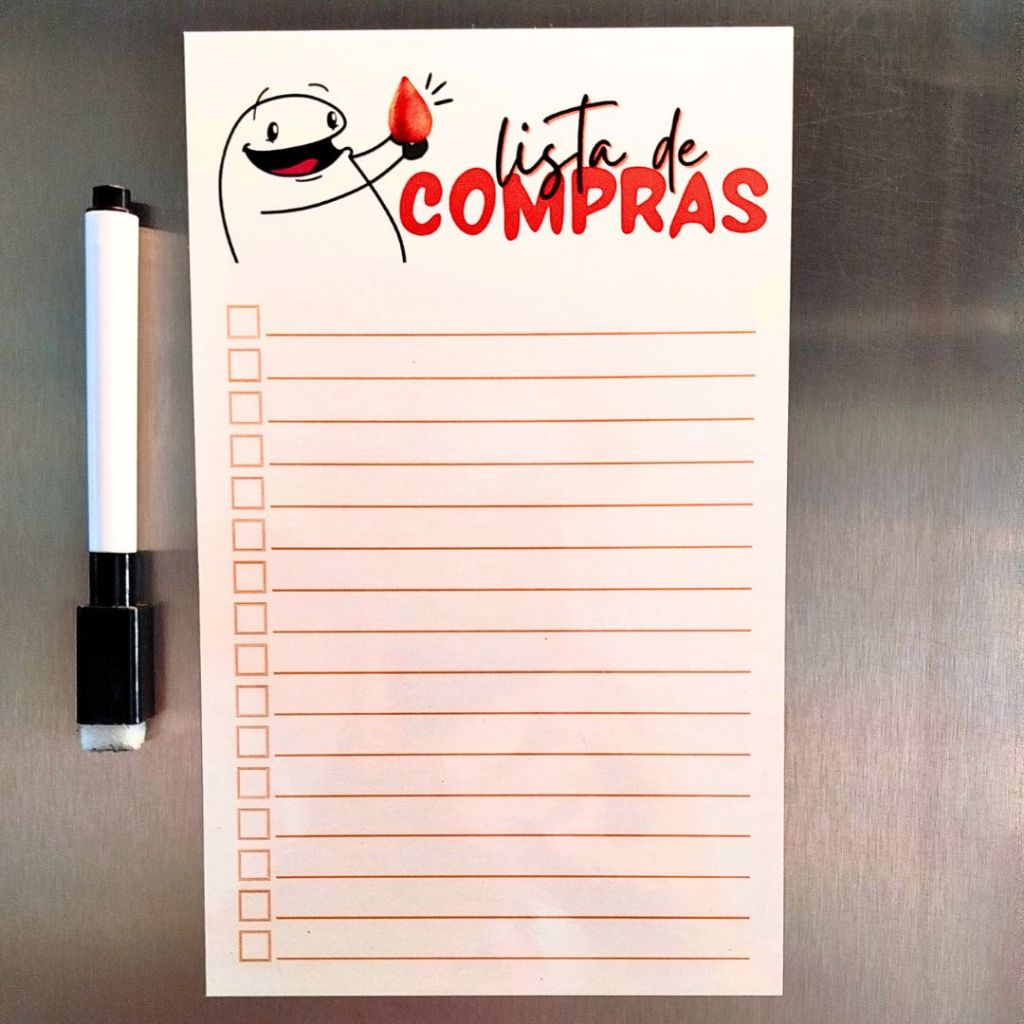 lista de
COMPRAS